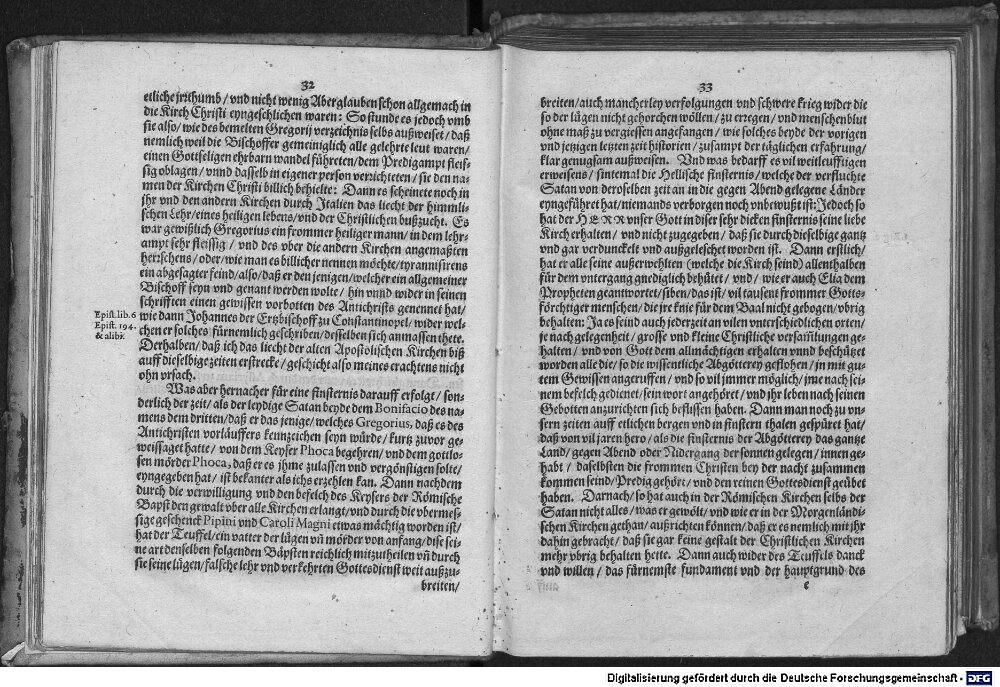 32
etliche jrthumb / vnd nicht wenig Aberglauben schon allgemach in
die Kirch Christi eyngeschlichen waren: So stunde es jedoch vmb
sie also / wie des bemelten Gregorij verzeichnis selbs außweiset / daß
nemlich weil die Bischoffer gemeiniglich alle gelehrte leut waren /
einen Gottseligen ehrbarn wandel führeten / dem Predigampt fleis-
sig oblagen / vnnd dasselb in eigener person verrichteten / sie den na-
men der Kirchen Christi billich behielte: Dann es scheinete noch in
jhr vnd den andern Kirchen durch Italien das liecht der himmli-
schen Lehr / eines heiligen lebens / vnd der Christlichen bußzucht. Es
war gewißlich Gregorius ein frommer heiliger mann / in dem lehr-
ampt sehr fleissig / vnd des vber die andern Kirchen angemaßten
herrschens / oder / wie man es billicher nennen möchte / tyrannisirens
ein abgesagter feind / also / daß er den jenigen / welcher ein allgemeiner
Bischoff seyn vnd genant werden wolte / hin vnnd wider in seinen
schrifften einen gewissen vorbotten des Antichrists genennet hat /
Epist. lib. 6
Epist. 194.
& alibi.
wie dann Johannes der Ertzbischoff zu Constantinopel / wider wel-
chen er solches fürnemlich geschriben / desselben sich anmassen thete.
Derhalben / daß ich das liecht der alten Apostolischen Kirchen biß
auff dieselbige zeiten erstrecke / geschicht also meines erachtens nicht
ohn vrsach.
Was aber hernacher für eine finsternis darauff erfolgt / son-
derlich der zeit / als der leydige Satan beyde dem Bonifacio des na-
mens dem dritten / daß er das jenige / welches Gregorius, daß es des
Antichristen vorläuffers kennzeichen seyn würde / kurtz zuvor ge-
weissaget hatte / von dem Keyser Phoca begehren / vnd dem gottlo-
sen mörder Phoca, daß er es jhme zulassen vnd vergönstigen solte /
eyngegeben hat / ist bekanter als ichs erzehlen kan. Dann nachdem
durch die verwilligung vnd den befelch des Keysers der Römische
Bapst den gewalt vber alle Kirchen erlangt / vnd durch die vbermes-
sige geschenck Pipini vnd Caroli Magni etwas mächtig worden ist /
hat der Teuffel / ein vatter der lügen vñ mörder von anfang / dise sei-
ne art denselben folgenden Bäpsten reichlich mitzuheilen vñ durch
sie seine lügen / falsche lehr vnd verkehrten Gottesdienst weit außzu-
breiten /
33
breiten / auch mancherley verfolgungen vnd schwere krieg wider die
so der lügen nicht gehorchen wöllen / zu erregen / vnd menschenblut
ohne maß zu vergiessen angefangen / wie solches beyde der vorigen
vnd jetzigen letzten zeit historien / zusampt der täglichen erfahrung /
klar genugsam außweisen. Vnd was bedarff es vil weitleufftigen
erweisens / sintemal die Hellische finsternis / welche der verfluchte
Satan von derselben zeit an in die gegen Abend gelegene Länder
eyngeführet hat / niemands verborgen noch vnbewußt ist: Jedoch so
hat der HERR vnser Gott in diser sehr dicken finsternis seine liebe
Kirch erhalten / vnd nicht zugegeben / daß sie durch dieselbige gantz
vnd gar verdunckelt vnd außgeleschet worden ist. Dann erstlich /
hat er alle seine außerwehlten (welche die Kirch seind) allenthalben
für dem vntergang gnediglich behütet / vnd / wie er auch Elia dem
Propheten geantwortet / siben / das ist / vil tausent frommer Gotts-
förchtiger menschen / die jre knie für dem Baal nicht gebogen / vbrig
behalten: Ja es seind auch jederzeit an vilen vnterschiedlichen orten /
je nach gelegenheit / grosse vnd kleine Christliche versam̃lungen ge-
halten / vnd von Gott dem allmächtigen erhalten vnnd beschützet
worden alle die / so die wissentliche Abgötterey geflohen / jn mit gu-
tem Gewissen angeruffen / vnd so vil immer möglich / jme nach sei-
nem befelch gedienet / sein wort angehöret / vnd jhr leben nach seinen
Gebotten anzurichten sich beflissen haben. Dann man noch zu vn-
sern zeiten auff etlichen bergen vnd in finstern thalen gespüret hat /
daß von vil jaren hero / als die finsternis der Abgötterey das gantze
Land / gegen Abend oder Nidergang der sonnen gelegen / innen ge-
habt / daselbsten die frommen Christen bey der nacht zusammen
kommen seind / Predig gehört / vnd den reinen Gottesdienst geübet
haben. Darnach / so hat auch in der Römischen Kirchen selbs der
Satan nicht alles / was er gewölt / vnd wie er in der Morgenländi-
schen Kirchen gethan / außrichten können / daß er es nemlich mit jhr
dahin gebracht / daß sie gar keine gestalt der Christlichen Kirchen
mehr vbrig behalten hette. Dann auch wider des Teuffels danck
vnd willen / das fürnemste fundament vnd der hauptgrund des
e
Digitalisierung gefördert durch die Deutsche Forschungsgemeinschaft - DFG